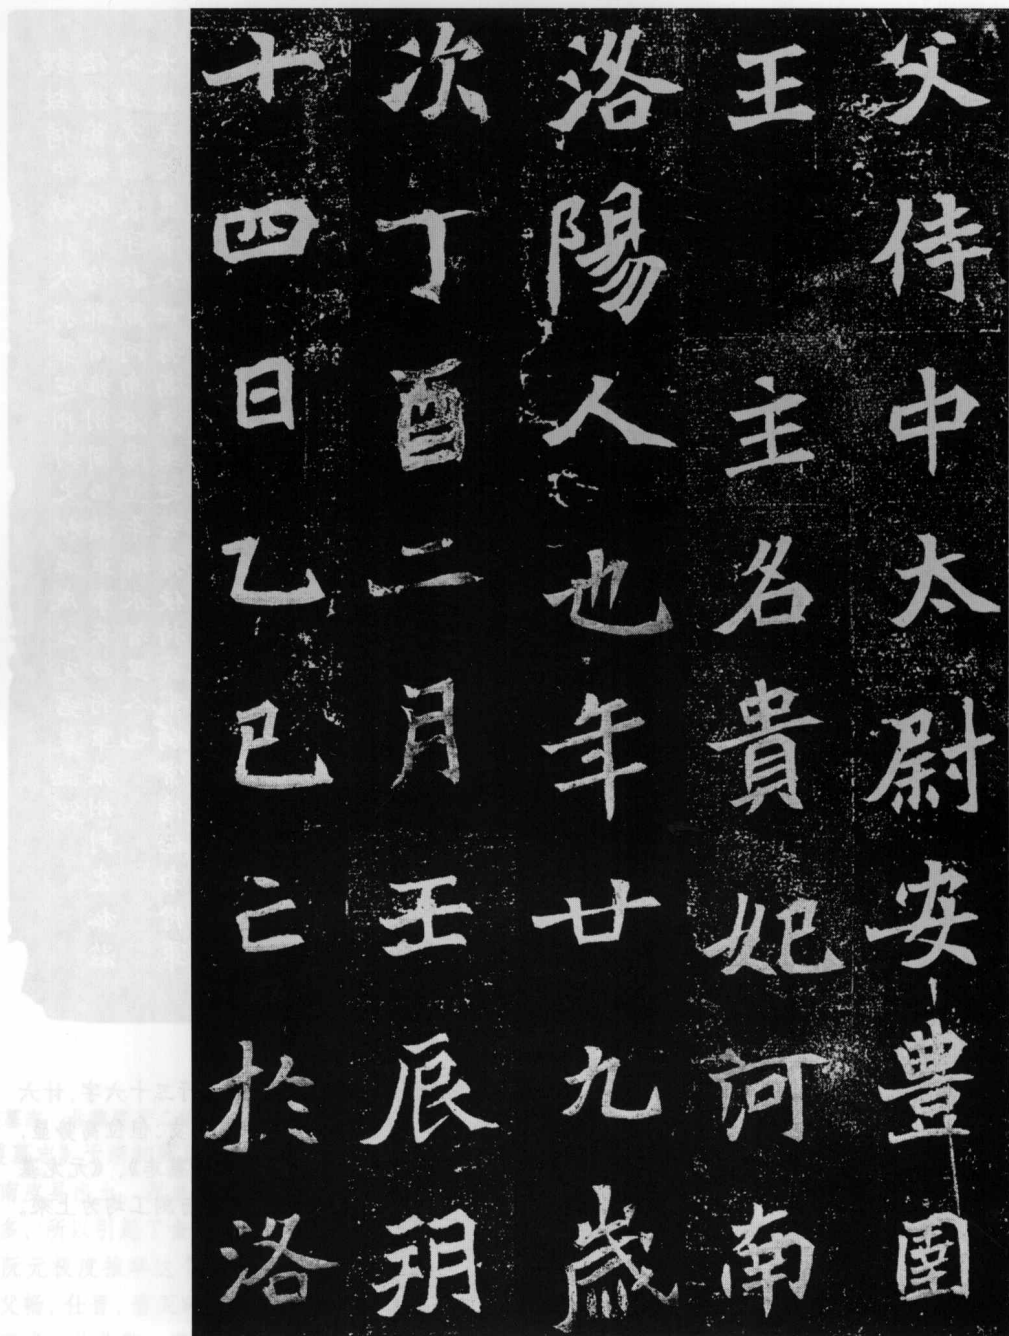 父侍中太尉安豐圉
王 主名貴妃河南
洛陽人也年廿九歲
次丁酉二月壬辰朔
十四日乙巳亡於洛